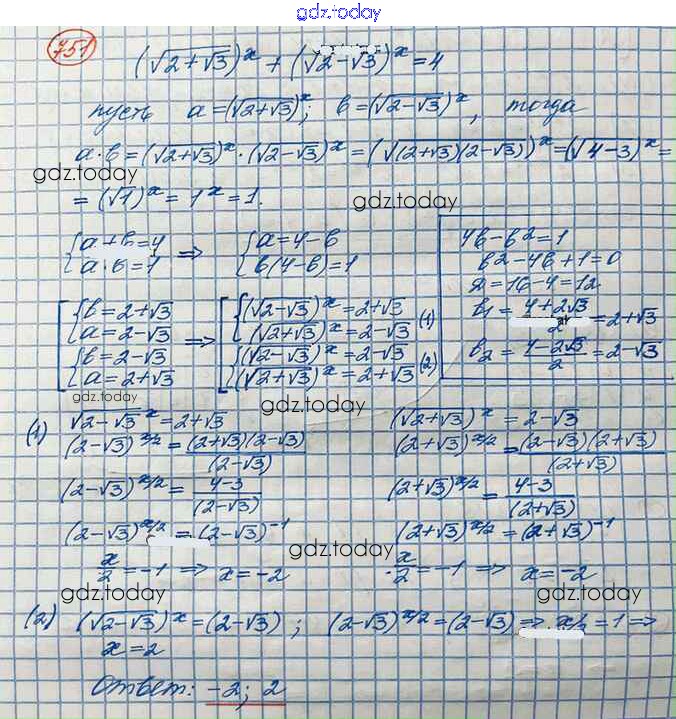 gdz.today
751
(√(2+√3))^x + (√(2-√3))^x = 4
пусть a=(√(2+√3))^x; b=(√(2-√3))^x, тогда
a·b=(√(2+√3))^x·(√(2-√3))^x=(√((2+√3)(2-√3)))^x=(√(4-3))^x=
gdz.today
=(√1)^x=1^x=1.
gdz.today
{a+b=4 ⇒ {a=4-b
{a·b=1 {b(4-b)=1
4b-b²=1
b²-4b+1=0
D=16-4=12
b₁=(4+2√3)/2=2+√3
b₂=(4-2√3)/2=2-√3
[{b=2+√3 ⇒ [{(√(2-√3))^x=2+√3
{a=2-√3 {(√(2+√3))^x=2-√3 (1)
{b=2-√3 {(√(2-√3))^x=2-√3
{a=2+√3 {(√(2+√3))^x=2+√3 (2)
gdz.today
gdz.today
(1) √(2-√3)^x=2+√3 (√(2+√3))^x=2-√3
(2-√3)^(x/2)=(2+√3)(2-√3)/(2-√3) (2+√3)^(x/2)=(2-√3)(2+√3)/(2+√3)
(2-√3)^(x/2)=(4-3)/(2-√3) (2+√3)^(x/2)=(4-3)/(2+√3)
(2-√3)^(x/2)=(2-√3)^-1 (2+√3)^(x/2)=(2+√3)^-1
gdz.today
x/2=-1 ⇒ x=-2 x/2=-1 ⇒ x=-2
gdz.today
gdz.today
(2) (√(2-√3))^x=(2-√3); (2-√3)^(x/2)=(2-√3) ⇒ x/2=1 ⇒
x=2
Ответ: -2; 2